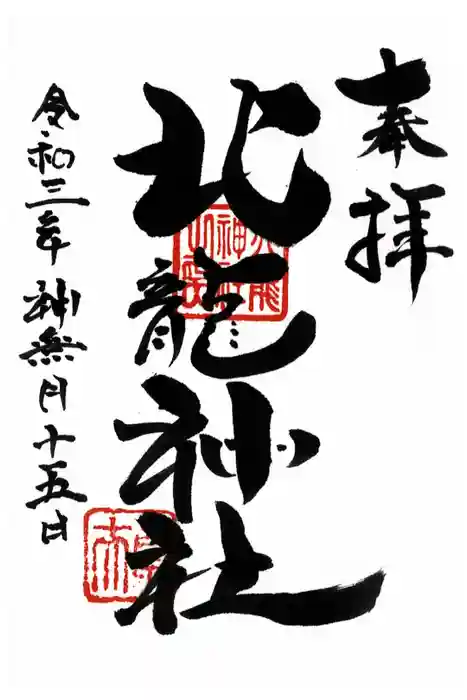 奉拝
北龍神社
令和三年神無月十五日